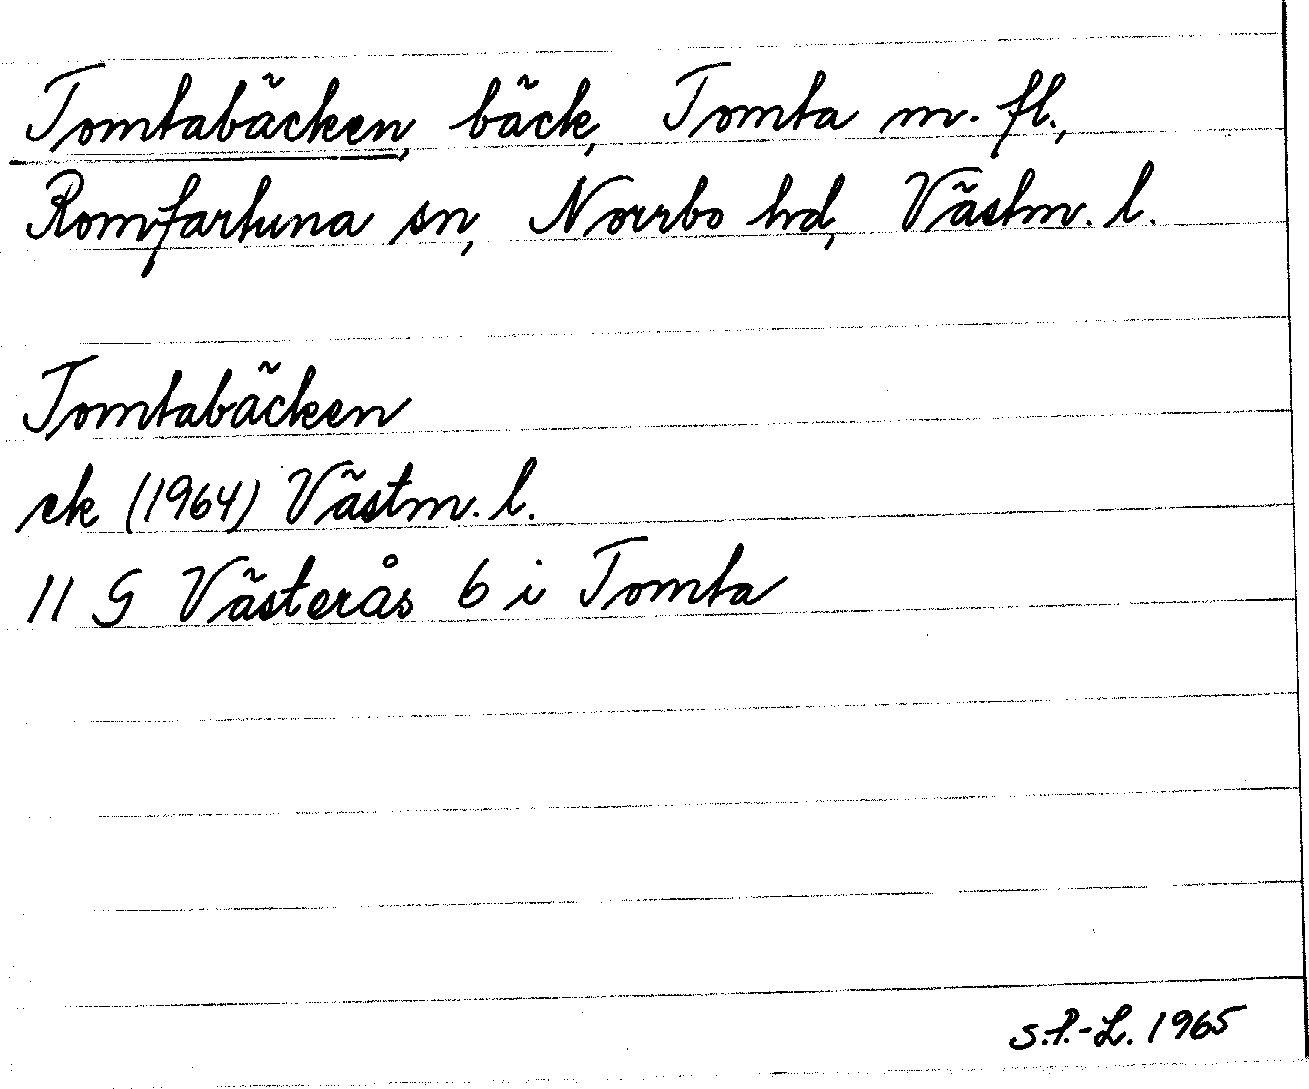 Tomtabäcken, bäck, Tomta m. fl.,
Romfartuna sn, Norrbo hd, Västm. l.
Tomtabäcken
ek (1964) Västm. l.
11 G Västerås 6 i Tomta
S.P.-L. 1965